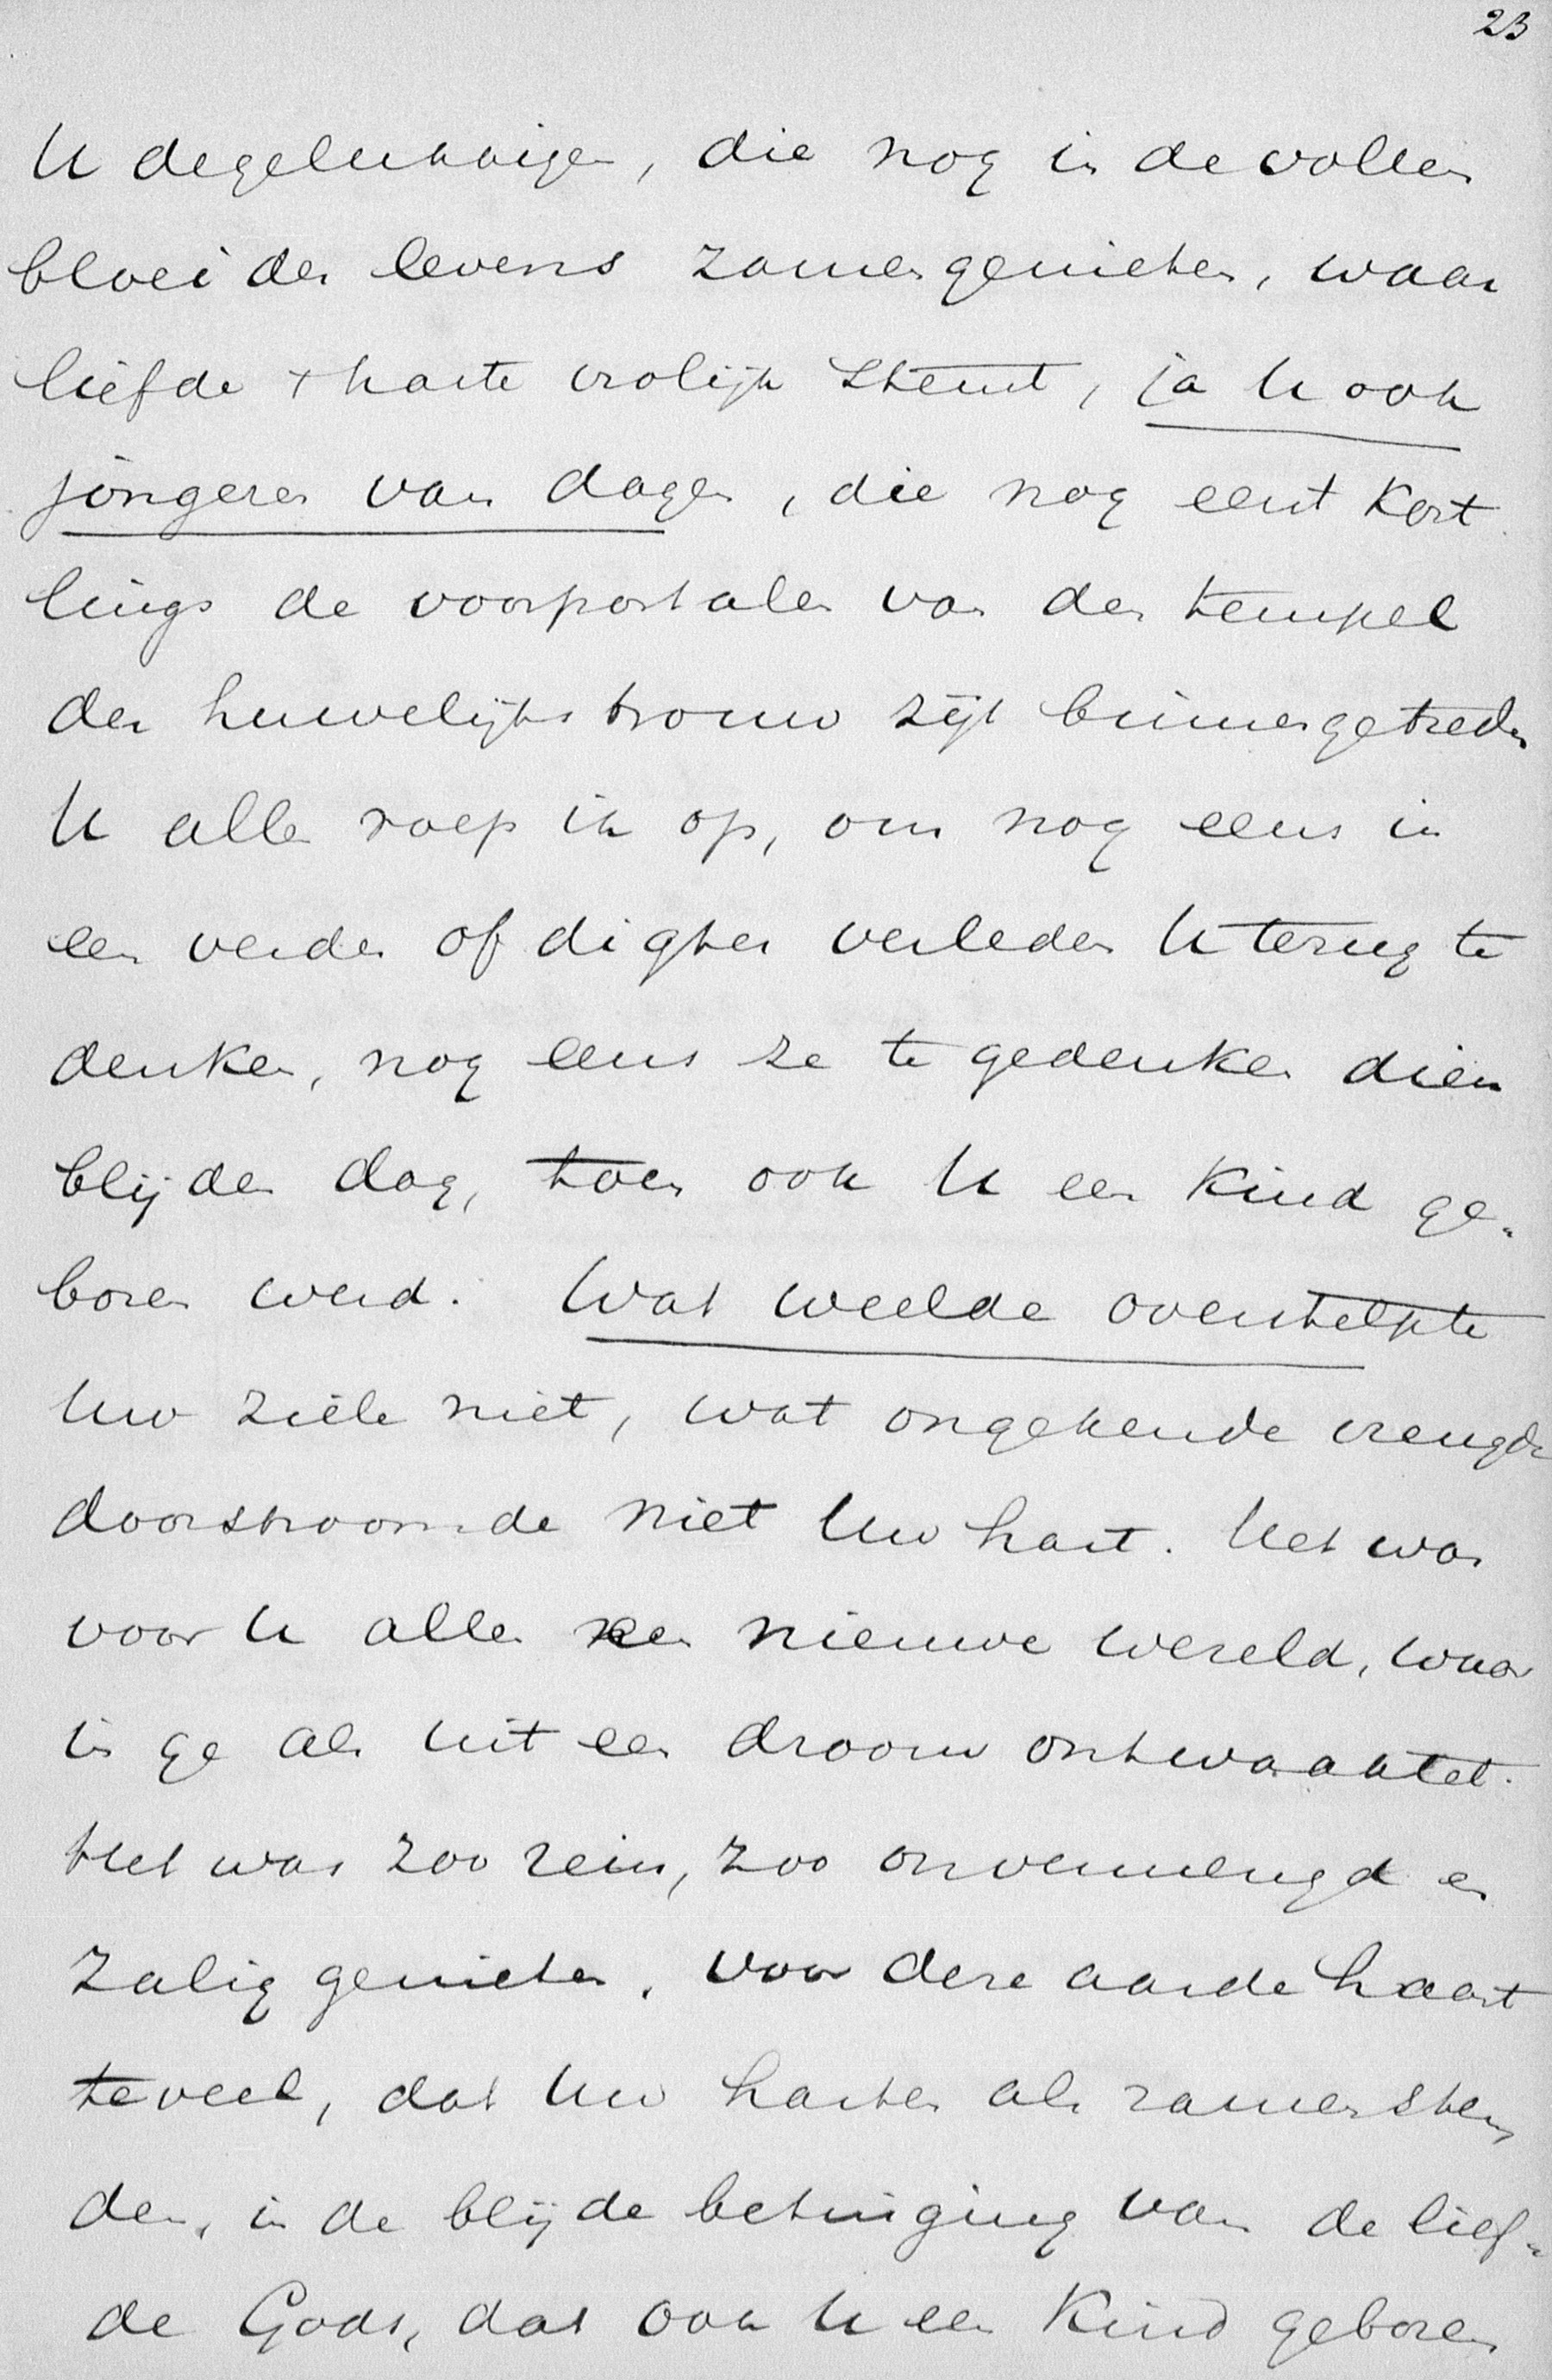 23
U degelukkigen, die nog in de vollen
bloei des levens zamen genieten, waar
liefde 't harte vrolijk stemt, ja U ook
jongeren van dagen, die nog eerst kort
lings de voorportalen van den tempel
der huwelijkstrouw zijt binnengetreden
U allen roep ik op, om nog eens in
een verder of digter verleden U terug te
denken, nog eens ze te gedenken dien
blijden dag, toen ook U een Kind ge-
boren werd. Wat weelde overstelpte
Uw ziele niet, wat ongekende vreugde
doorstroomde niet Uw hart. Het was
voor U allen een nieuwe wereld, waar
in ge als uit een droom ontwaaktet.
Het was zoo rein, zoo onvermengd en
zalig genieten, voor deze aarde haast
teveel, dat Uw harten als zamen
den, in de blijde betuiging van de lief-
de Gods, dat ook U een Kind geboren